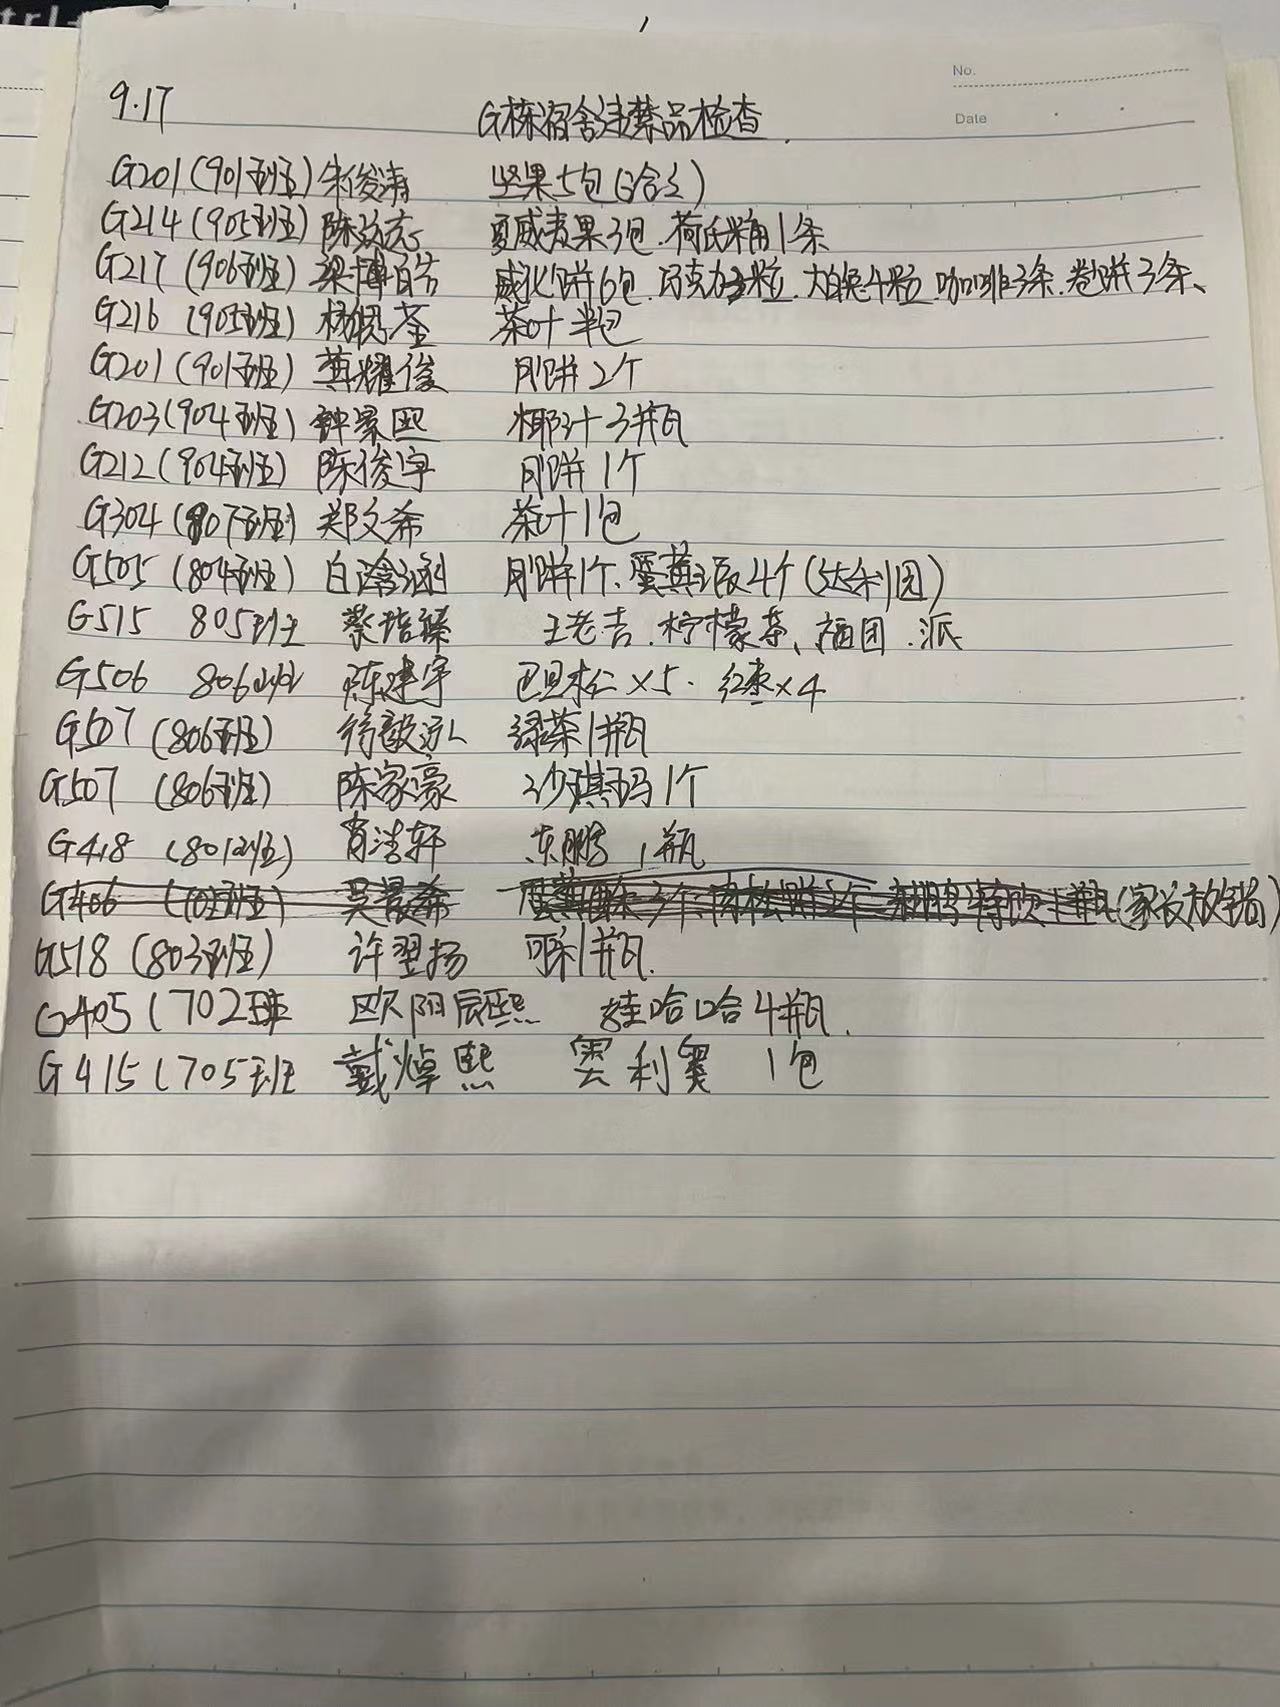 No.
Date
9.17 G栋宿舍违禁品检查
G201(901班) 朱俊涛 坚果5包
G214(905班) 陈 志 夏威夷果3包、荷氏糖1条
G217(906班) 梁博皓 威化饼6包、巧克力 粒、大白兔4粒、咖啡3条、卷饼3条、
G216 (905班) 杨 荃 茶叶半包
G201(901班) 黄耀俊 月饼2个
G203(904班) 钟景熙 椰汁3瓶
G212(904班) 陈俊宇 月饼1个
G304(807班) 郑文希 茶叶1包
G505(804班) 白 月饼1个、蛋黄派4个(达利园)
G515 805班 蔡培臻 王老吉、柠檬茶、 团、派
G506 806班 陈建宇 巴旦木仁×5、红枣×4
G507 (806班) 毅泓 绿茶1瓶
G507 (806班) 陈家豪 沙琪玛1个
G418 (801班) 肖浩轩 东鹏 1瓶
G406 (702班) 吴晨希 蛋黄酥3个、肉松饼2个、东鹏特饮1瓶(家长放错)
G518 (803班) 许翌扬 可乐1瓶.
G405(702班 欧阳辰熙 娃哈哈4瓶.
G415(705班 戴焯熙 奥利奥 1包